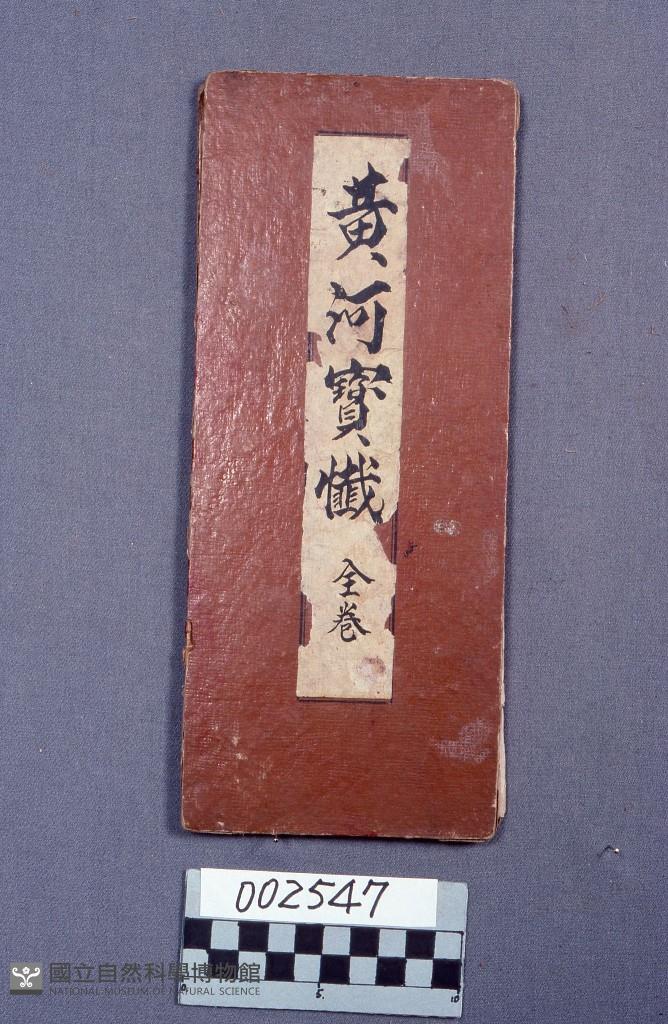 黃河寶懺
全卷
002547
0 5. 10
國立自然科學博物館
NATIONAL MUSEUM OF NATURAL SCIENCE